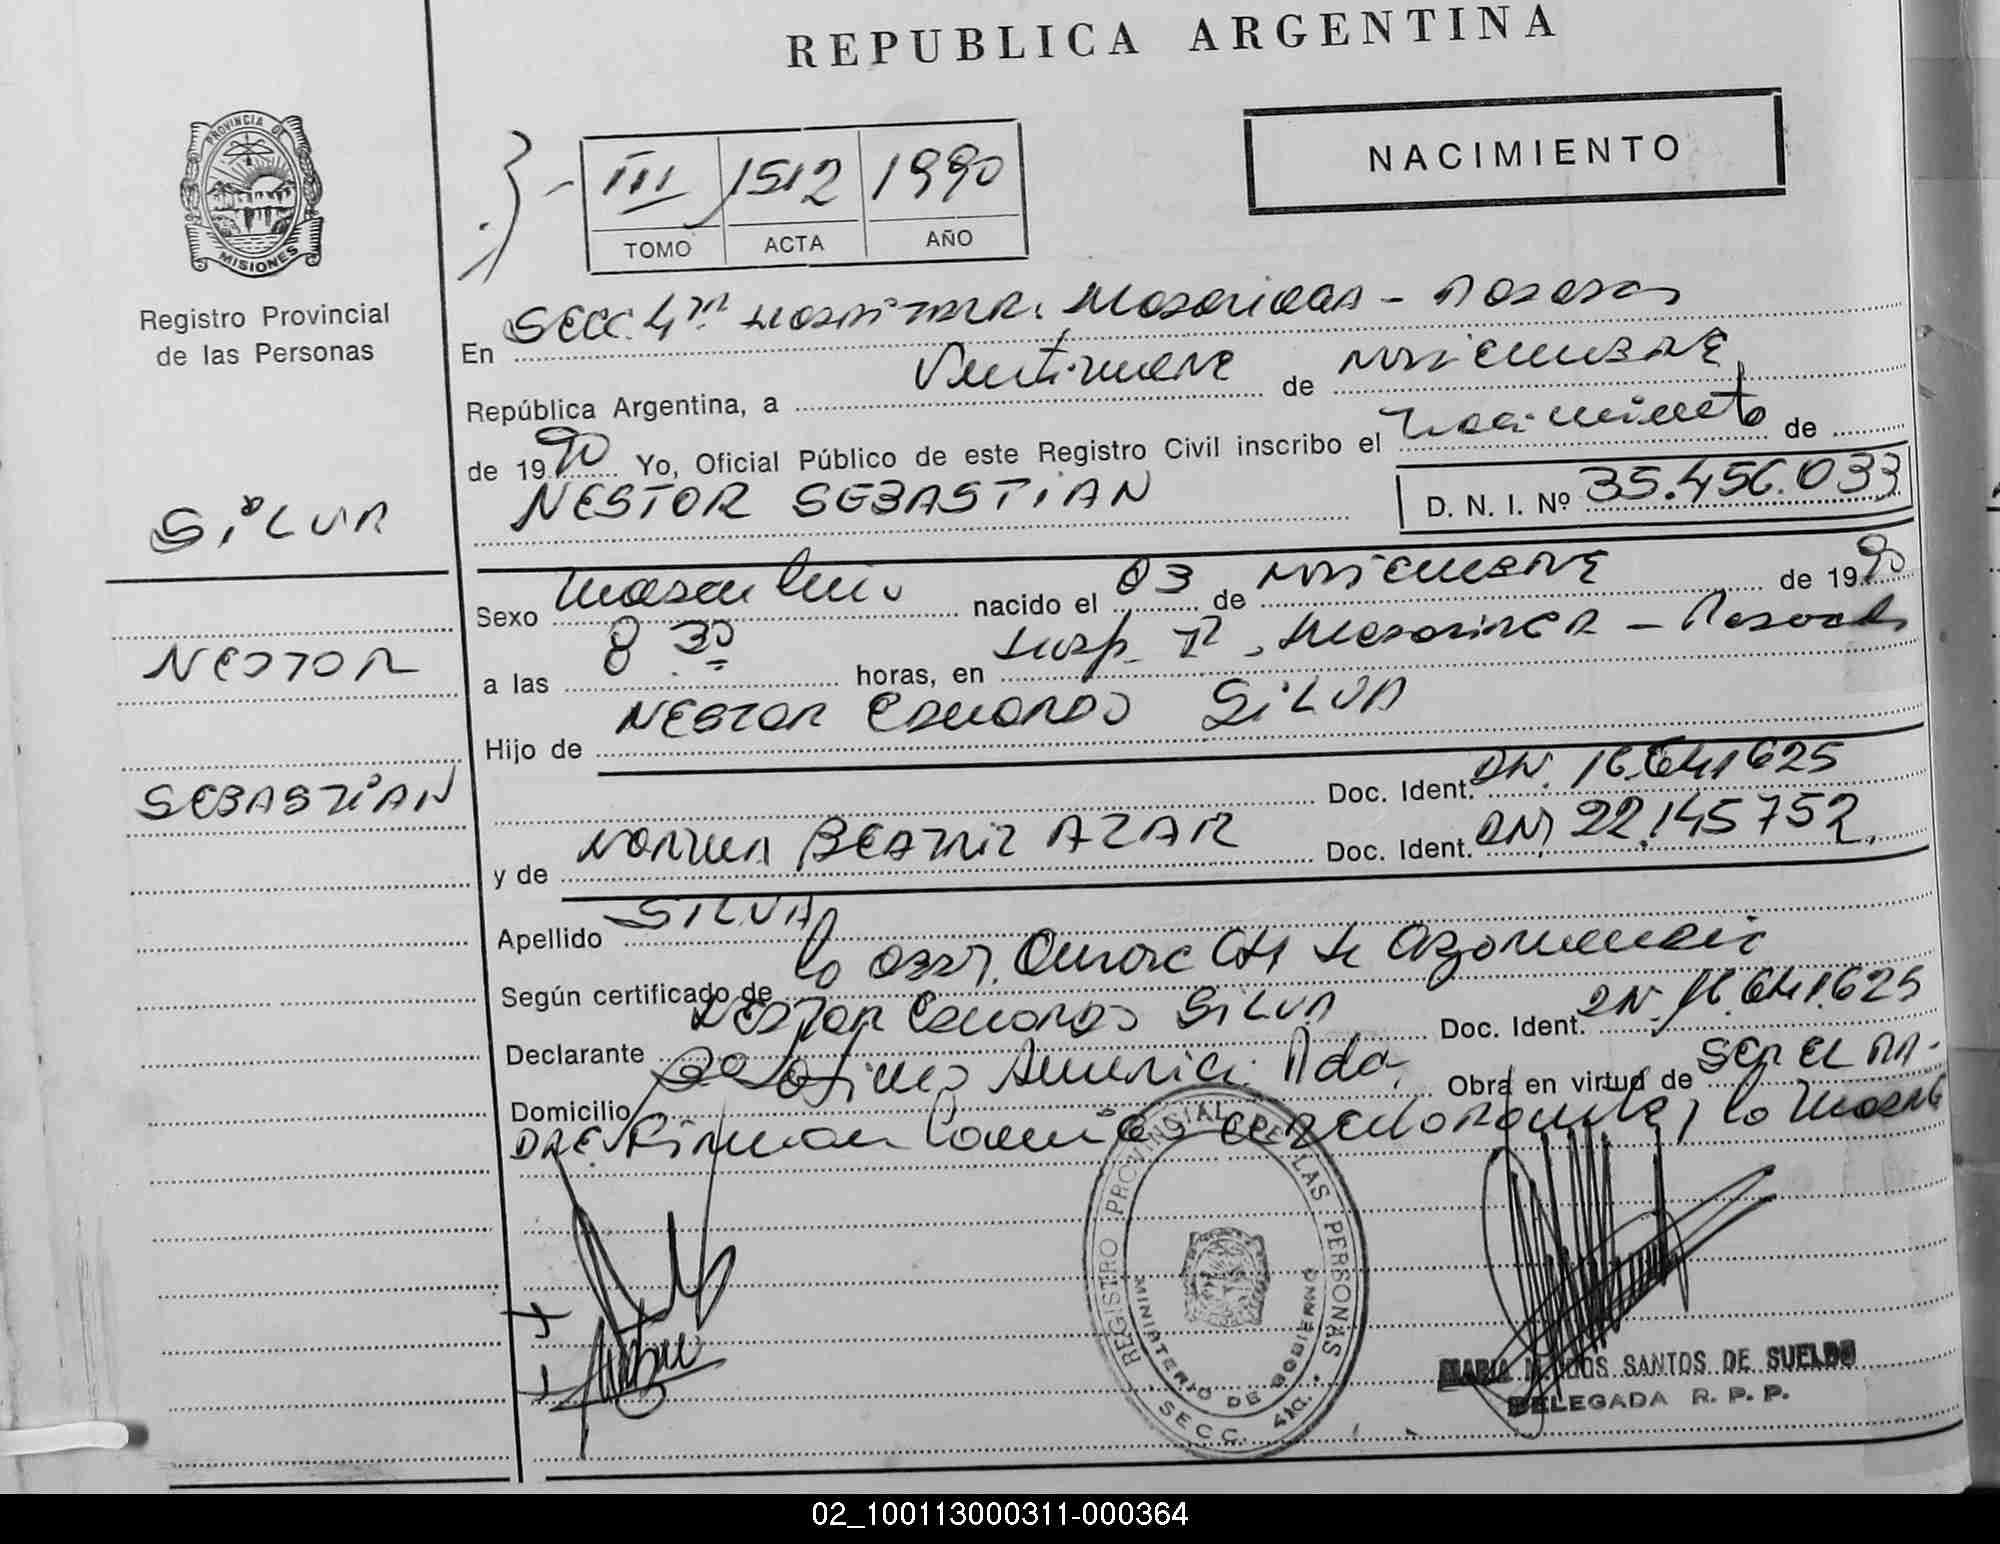 REPUBLICA ARGENTINA
PROVINCIA DE
MISIONES
Registro Provincial
de las Personas
NACIMIENTO
III 1512 1990
TOMO ACTA AÑO
En SECC. 4ta
República Argentina, a de NOVIEMBRE
de 1990 Yo, Oficial Público de este Registro Civil inscribo el Nacimiento de
NESTOR SEBASTIAN D. N. I. Nº 35.456.033
SILVA
NESTOR
SEBASTIAN
Sexo Masculino nacido el 03 de NOVIEMBRE de 1990
a las 8 30 horas, en Hosp.
Hijo de NESTOR EDUARDO SILVA
Doc. Ident. DNI. 16.641625
y de NORMA BEATRIZ AZAR Doc. Ident. DNI 22.145752
Apellido SILVA
Según certificado de la OBST.
Declarante NESTOR EDUARDO SILVA Doc. Ident. DNI. 16.641.625
Domicilio America Obra en virtud de SER EL PA-
DRE. Firman
REGISTRO PROVINCIAL DE LAS PERSONAS
MINISTERIO DE GOBIERNO
SECC. 4ta.
MARIA M. DOS SANTOS DE SUELDO
DELEGADA R. P. P.
02_100113000311-000364